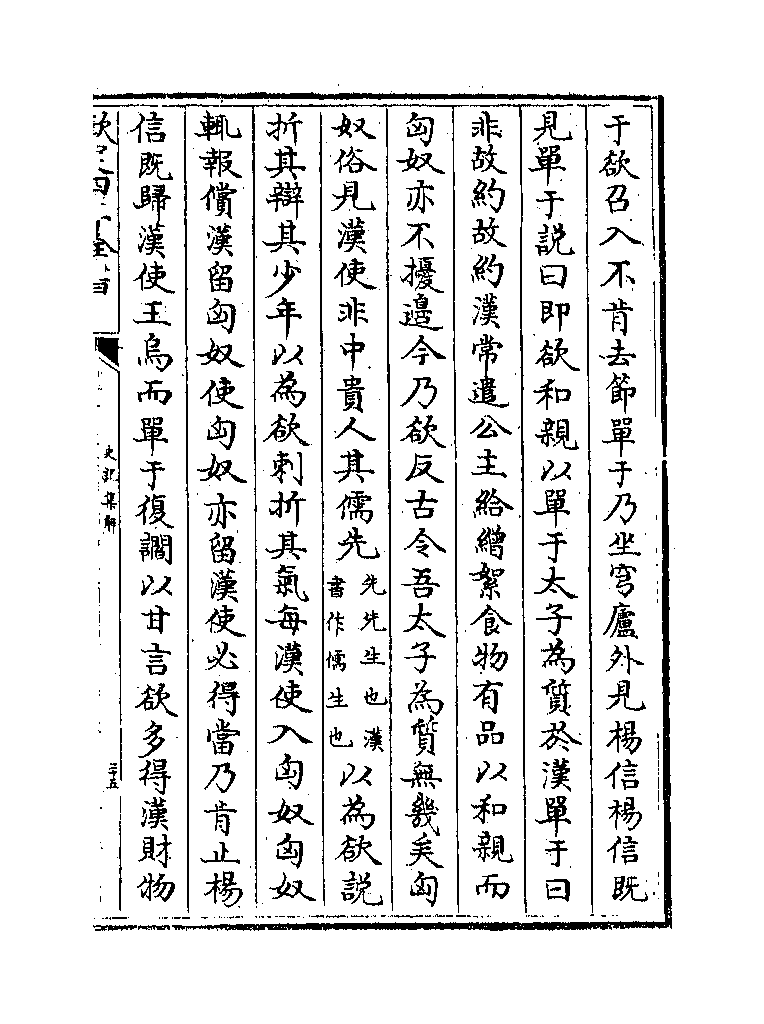 于欲召入不肯去節單于乃坐穹廬外見楊信楊信既
見單于説曰即欲和親以單于太子為質於漢單于曰
非故約故約漢常遣公主給繒絮食物有品以和親而
匈奴亦不擾邉今乃欲反古令吾太子為質無幾矣匈
奴俗見漢使非中貴人其儒先先先生也漢書作儒生也以為欲説
折其辯其少年以為欲刺折其氣每漢使入匈奴匈奴
輒報償漢留匈奴使匈奴亦留漢使必得當乃肯止楊
信既歸漢使王烏而單于復讇以甘言欲多得漢財物
史記集解
二十五